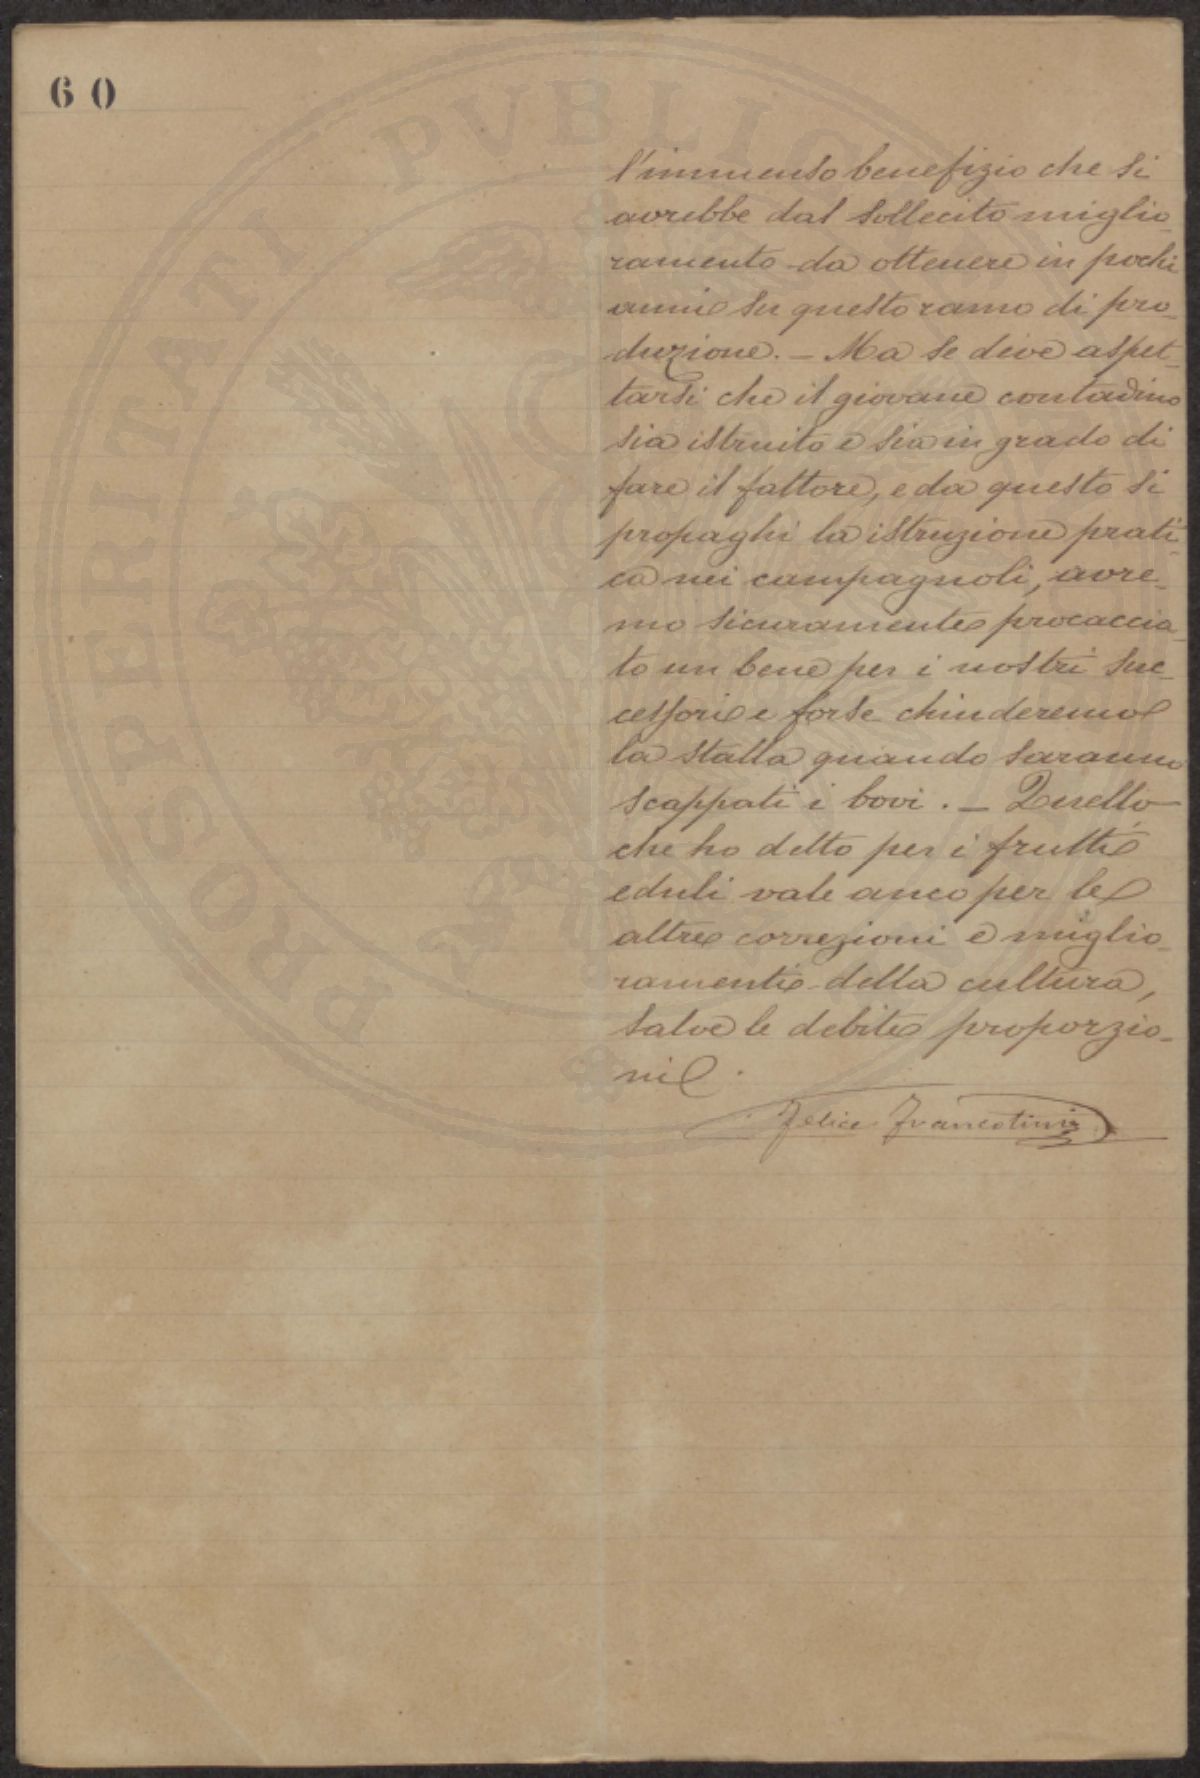 60
l'immenso benefizio che si
avrebbe dal sollecito miglio-
ramento da ottenere in pochi
anni su questo ramo di pro-
duzione. — Ma se deve aspet-
tarsi che il giovane contadino
sia istruito e sia in grado di
fare il fattore, e da questo si
propaghi la istruzione prati-
ca nei campagnoli, avre-
mo sicuramente procaccia-
to un bene per i nostri suc-
cessori e forse chiuderemo
la stalla quando saranno
scappati i bovi. — Quello
che ho detto per i frutti
eduli vale anco per le
altre correzioni e miglio-
ramenti della cultura,
salve le debite proporzio-
ni.
Felice Francolini
PROSPERITATI PVBLIC